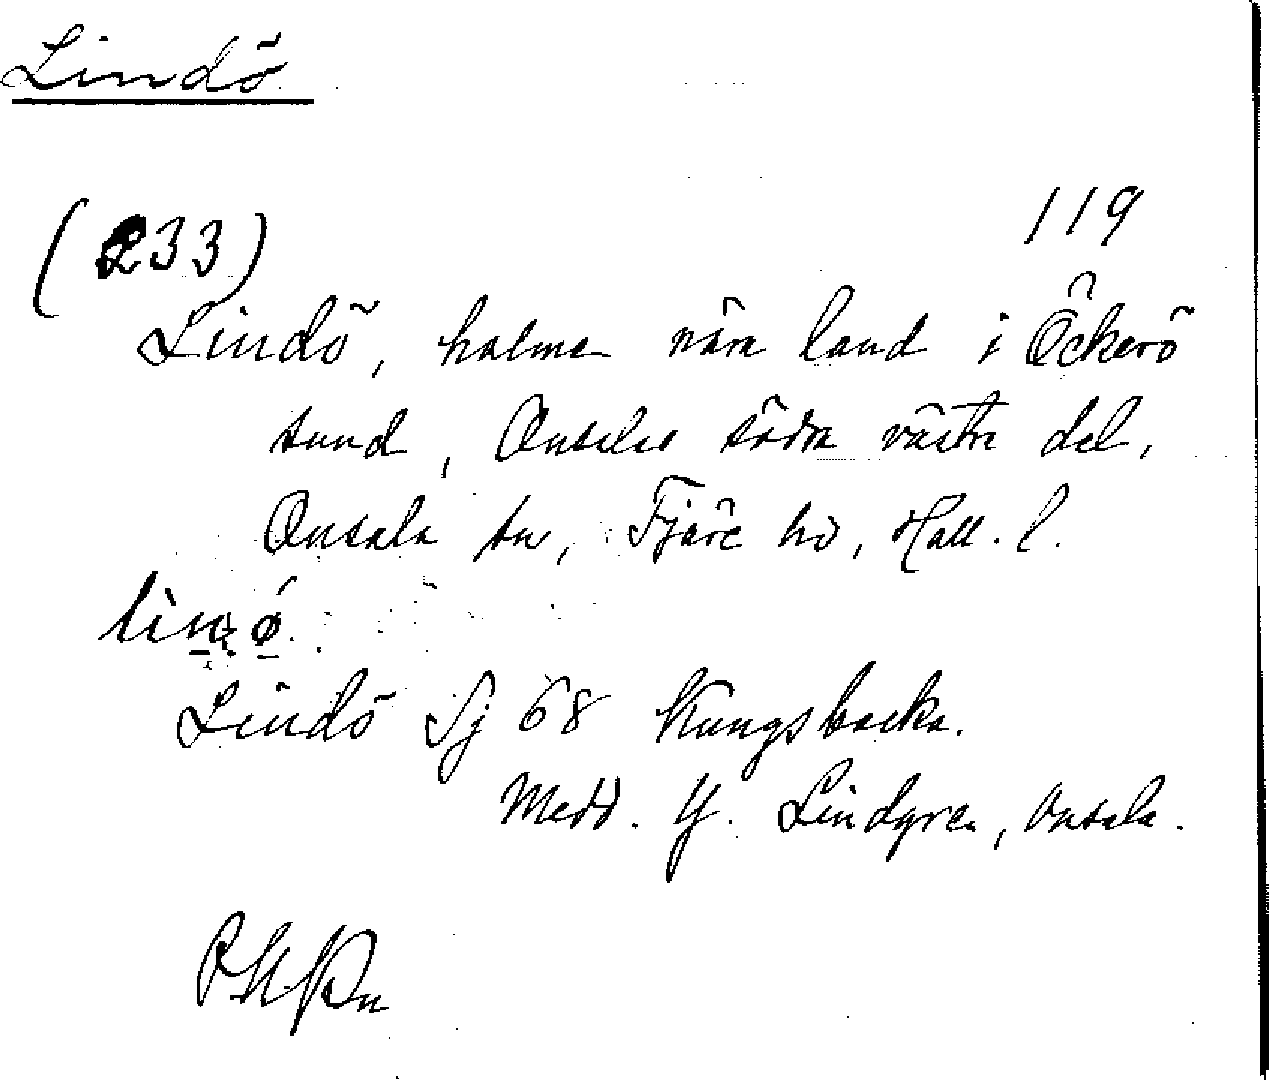 Lindö
(233) 119
Lindö, holme nära land i Öckerö
sund, Onsalas södra västra del,
Onsala sn, Fjäre hd, Hall. l.
Lindö Sj 68 Kungsbacka.
Medd. Y. Lindgren, Onsala.